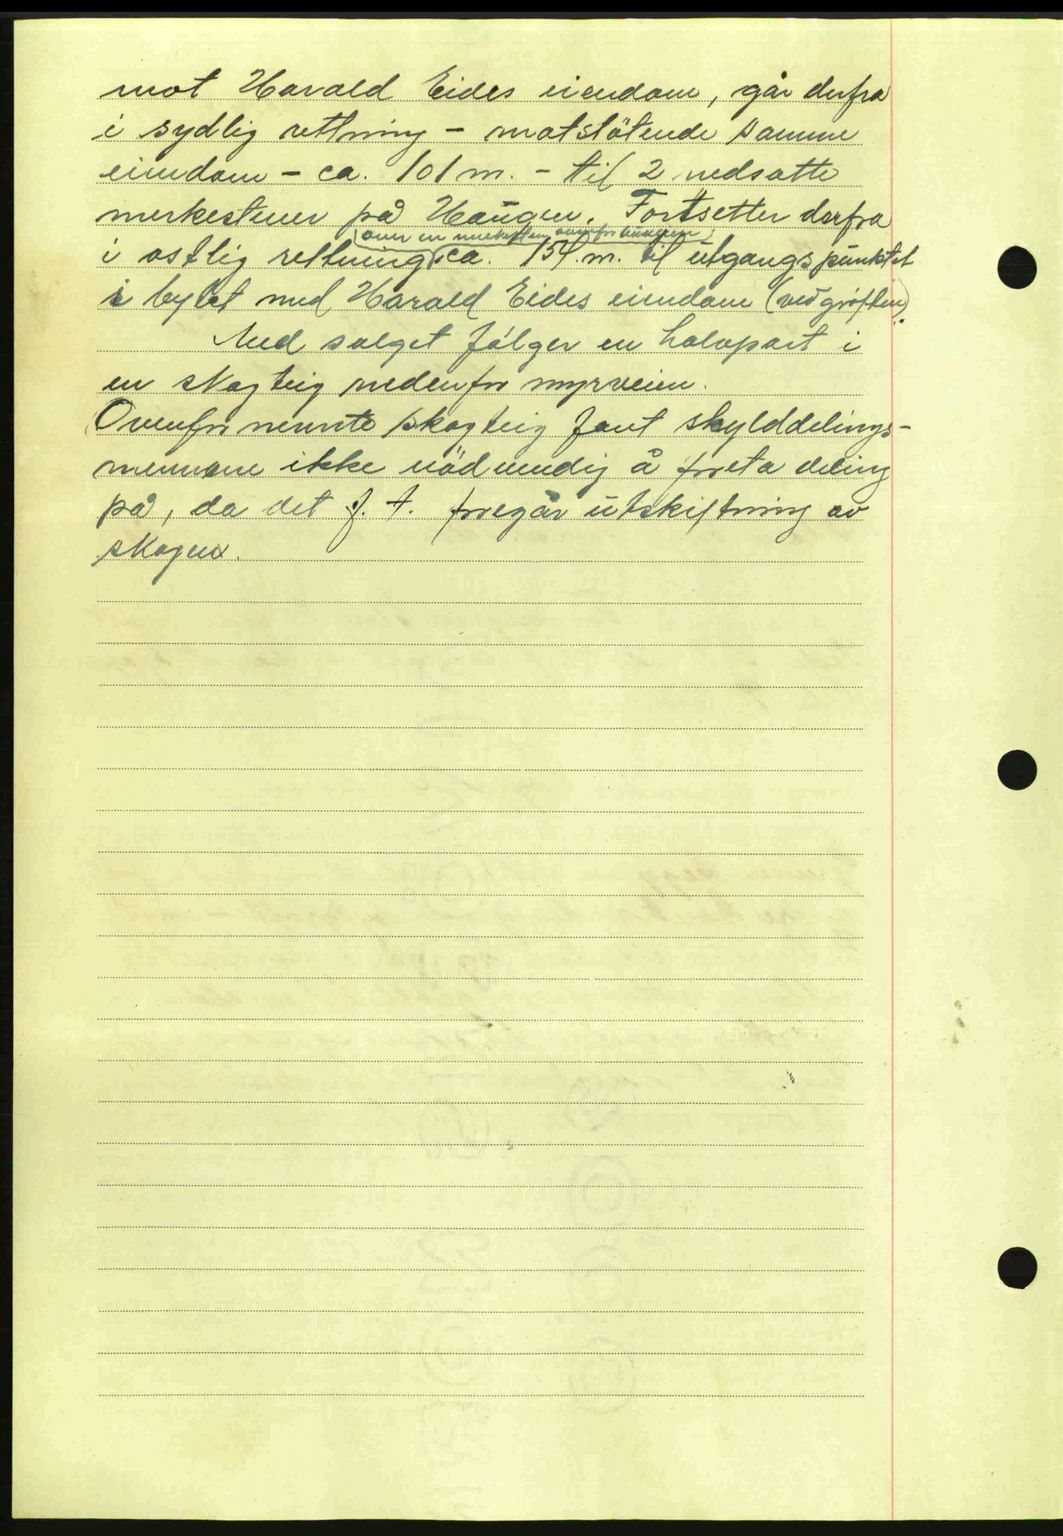 mot Harald Eides eiendom, går derfra
i sydlig rettning - motstötende samme
eiendom - ca. 101 m. - til 2 nedsatte
merkestener på Haugen. Fortsetter derfra
(over en merkesten ovenfor haugen)
i østlig rettning ca. 154 m. til utgangspunktet
i bytet med Harald Eides eiendom (ved grøften).
Med salget fölger en halvpart i
en skogteig nedenfor myrveien.
Ovenfor nevnte skogteig fant skylddelings-
mennene ikke nödvendig å foreta deling
på, da det f. t. foregår utskiftning av
skogen.